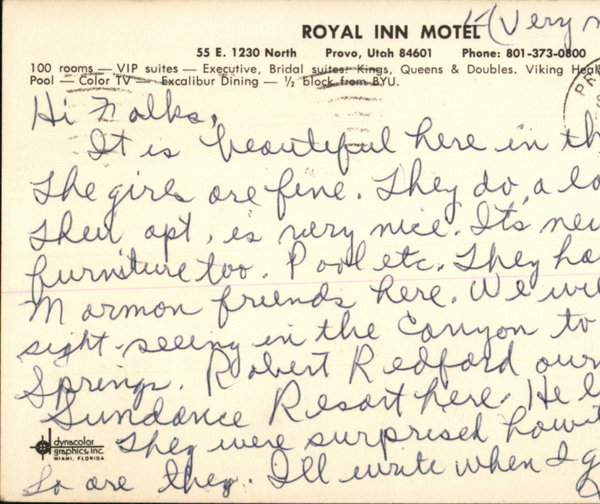 ROYAL INN MOTEL (Very
55 E. 1230 North Provo, Utah 84601 Phone: 801-373-0800
100 rooms — VIP suites — Executive, Bridal suites: Kings, Queens & Doubles. Viking Heal
Pool — Color TV — Excalibur Dining — ½ block from BYU.
Hi Folks,
It is beautiful here in th
The girls are fine. They do, a lo
Their apt, is very nice. It's new
furniture too. Pool etc. They ha
Mormon friends here. We will
sight-seeing in the Canyon to
Springs. Robert Redford own
Sundance Resort here. He l
They were surprised how
So are they. I'll write when I g
dynacolor
graphics, inc.
MIAMI, FLORIDA